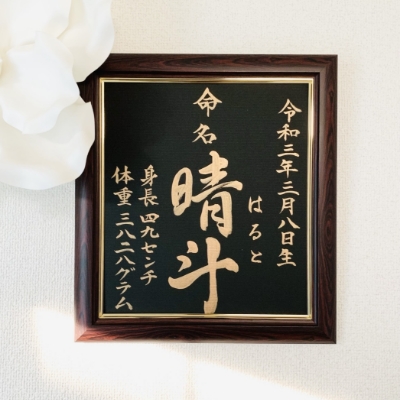 令和三年三月八日生
はると
命名
晴斗
身長 四九センチ
体重 三八二八グテム